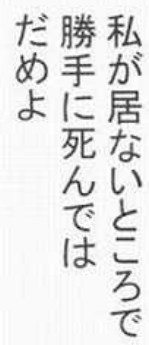 私が居ないところで
勝手に死んでは
だめよ